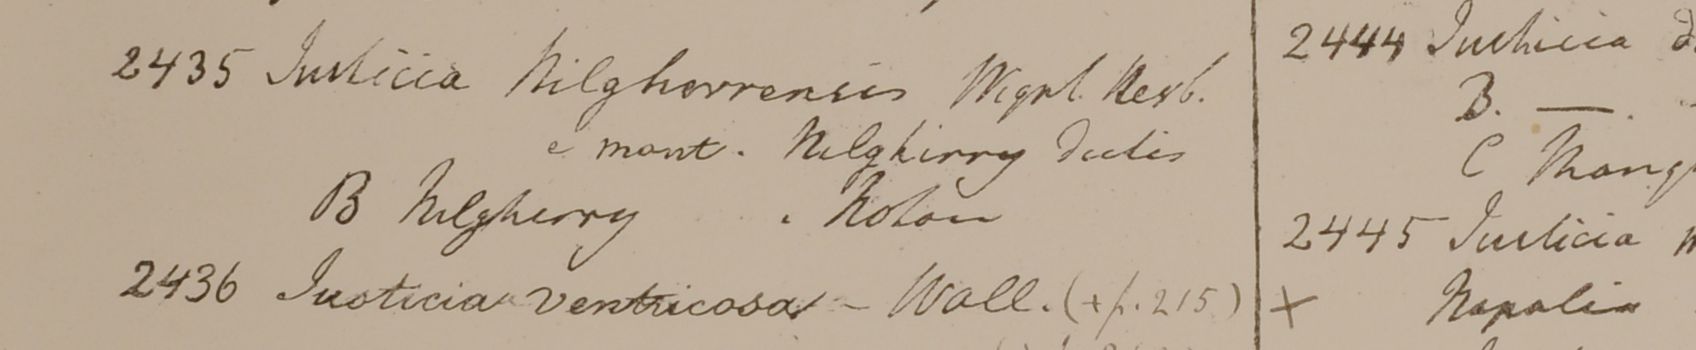 2435 Justicia Nilgherrensis Wight. Herb.
e mont. Nilghirry dictis
B Nilgherry . Noton
2436 Justicia ventricosa - Wall. (+ p. 215)
2444 Justicia
B. — .
C
2445 Justicia
+ Napalia